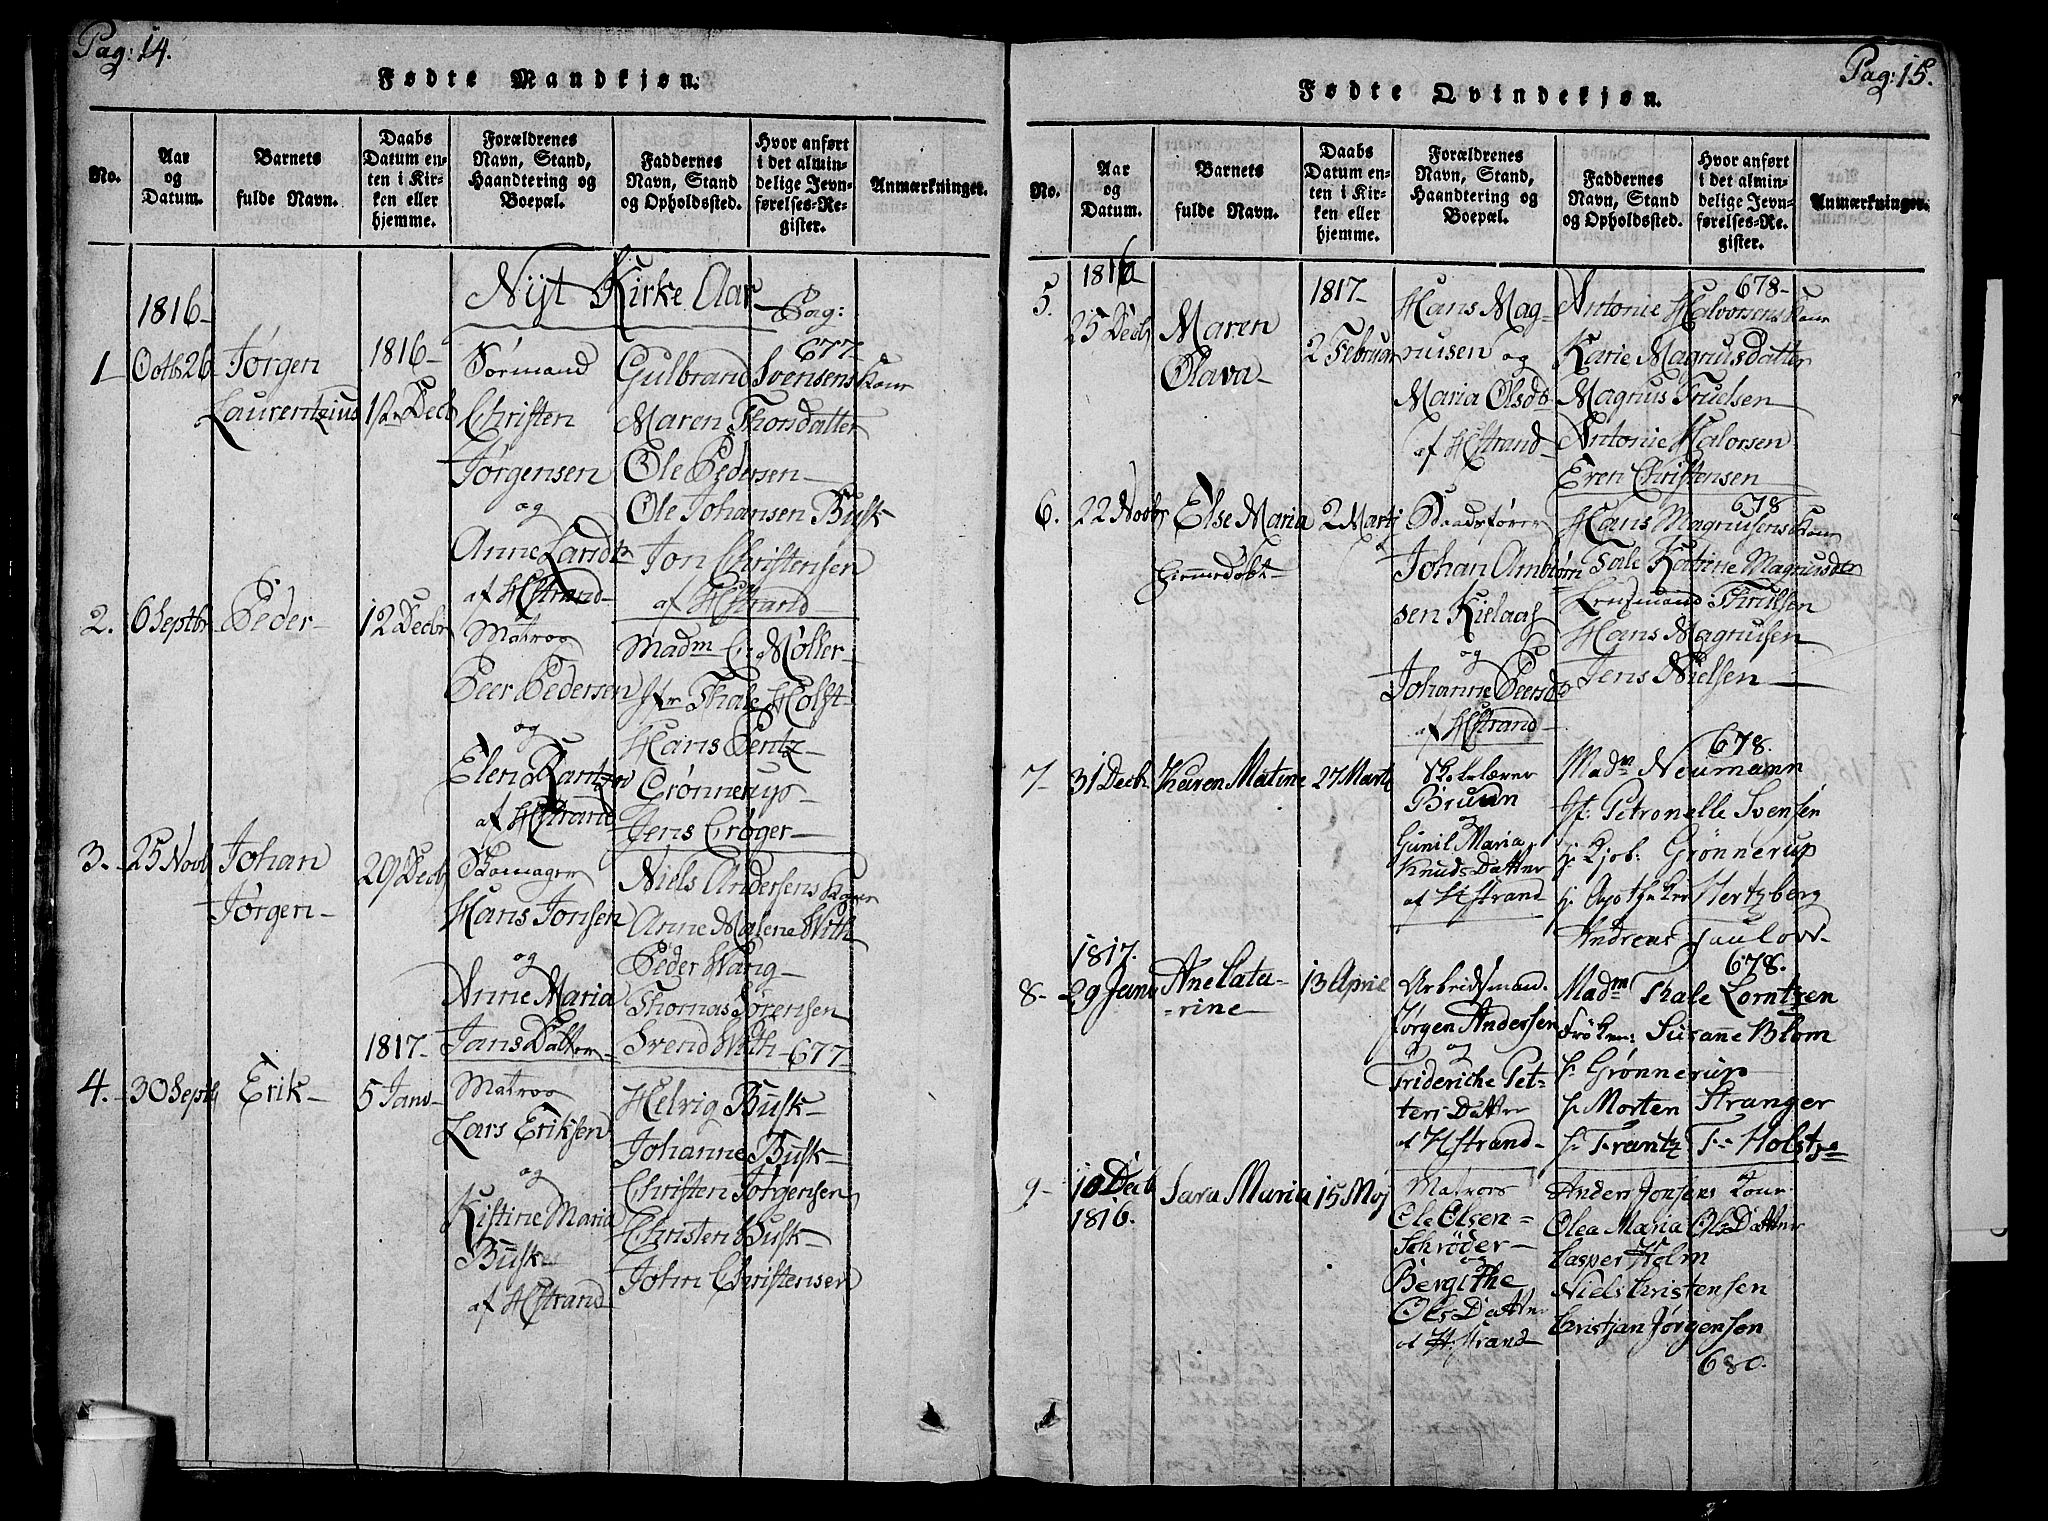 Pag: 14.
Fødte Mandkjøn.
No.
Aar
og
Datum.
Barnets
fulde Navn.
Daabs
Datum en-
ten i Kir-
ken eller
hjemme.
Forældrenes
Navn, Stand,
Haandtering og
Boepæl.
Faddernes
Navn, Stand
og Opholdssted.
Hvor anført
i det almin-
delige Jevn-
førelses-Re-
gister.
Anmærkninger.
Nyt Kirke Aar
Pag:
677
1816
1
Octb 26
Jørgen
Laurentzius
1816
1ste Decb
Sørmand
Christen
Jørgensen
og
Anne
af HStrand
Gulbrand Svensens Kone
Maren Thondatter
Ole Pedersen
Ole Johansen Busk
Jon Christensen
af HStrand
2.
6 Septbr
Peder
12 Decbr
Matros
Peer Pedersen
og
Elen Rantzen
af HStrand
Madm C. Møller
Jfr Thale Holst
Hans Bentz
Grønnerup
Jens Crøger
3.
25 Novb
Johan
Jørgen
29 Decb
Skomager
Hans Jonsen
og
Anne Maria
Jans Datter
Niels Andersens Kone
Anne Malene With
Peder Wang
Thomas Sørensen
Svend With 677
4.
30 Septb
Erik
1817
5 Janv
Matros
Lars Eriksen
og
Kistine Maria
Busk
af HStrand
Helvig Busk
Johanne Busk
Christen Jørgensen
Christen Busk
John Christensen
Pag: 15.
Fødte Qvindekjøn.
No.
Aar
og
Datum.
Barnets
fulde Navn.
Daabs
Datum en-
ten i Kir-
ken eller
hjemme.
Forældrenes
Navn, Stand,
Haandtering og
Boepæl.
Faddernes
Navn, Stand
og Opholdssted.
Hvor anført
i det almin-
delige Jevn-
førelses-Re-
gister.
Anmærkninger.
5.
1816
25 Decb
Maren
Olava
1817
2 Februar
Hans Mag-
nusen og
Maria Olsdtr
af HStrand
678
Antonie Halvorsens Kone
Karie Magnusdatter
Magnus Truelsen
Antonie Halvorsen
Even Christensen
6.
22 Novbr
Else Maria
hiemmedøbt
2 Martj
Baadsfører
Johan Ambiørn
sen Kielaas
og
Johanne Peersdtr
af HStrand
678
Hans Magnusens Kone
Tale Katrine Magnusdtr
Hans Magnusen
Jens Nielsen
7
31 Decb.
Karen Matine
27 Marti
Skolelærer
Bruun
og
Gunil Maria
Knuds Datter
af HStrand
678.
Madm Neumann
Jf: Petronelle Svensen
Hr. Kjøb: Grønnerup
Hr. Apotheker Hertzberg
Andreas Paulow
8
1817.
29 Janv
Ane Catu-
rine
13 April
Arbeidsmand.
Jørgen Andersen
og
Frideriche Pet-
ters Datter
af HStrand
678.
Madm Thale Lorntzen
Frøken: Susanne Blom
hr. Grønnerup
hr. Morten Stranger
hr. Frantz T. Holst
9
10 Decb
1816.
Sara Maria
15 Maj
Matros
Ole Olsen
Schrøder
og
Bergithe
Ols Datter
af HStrand
Anders Jonsens Kone
Olea Maria Ols Datter
Casper Holm
Niels Christensen
Cristjan Jørgensøn
680.